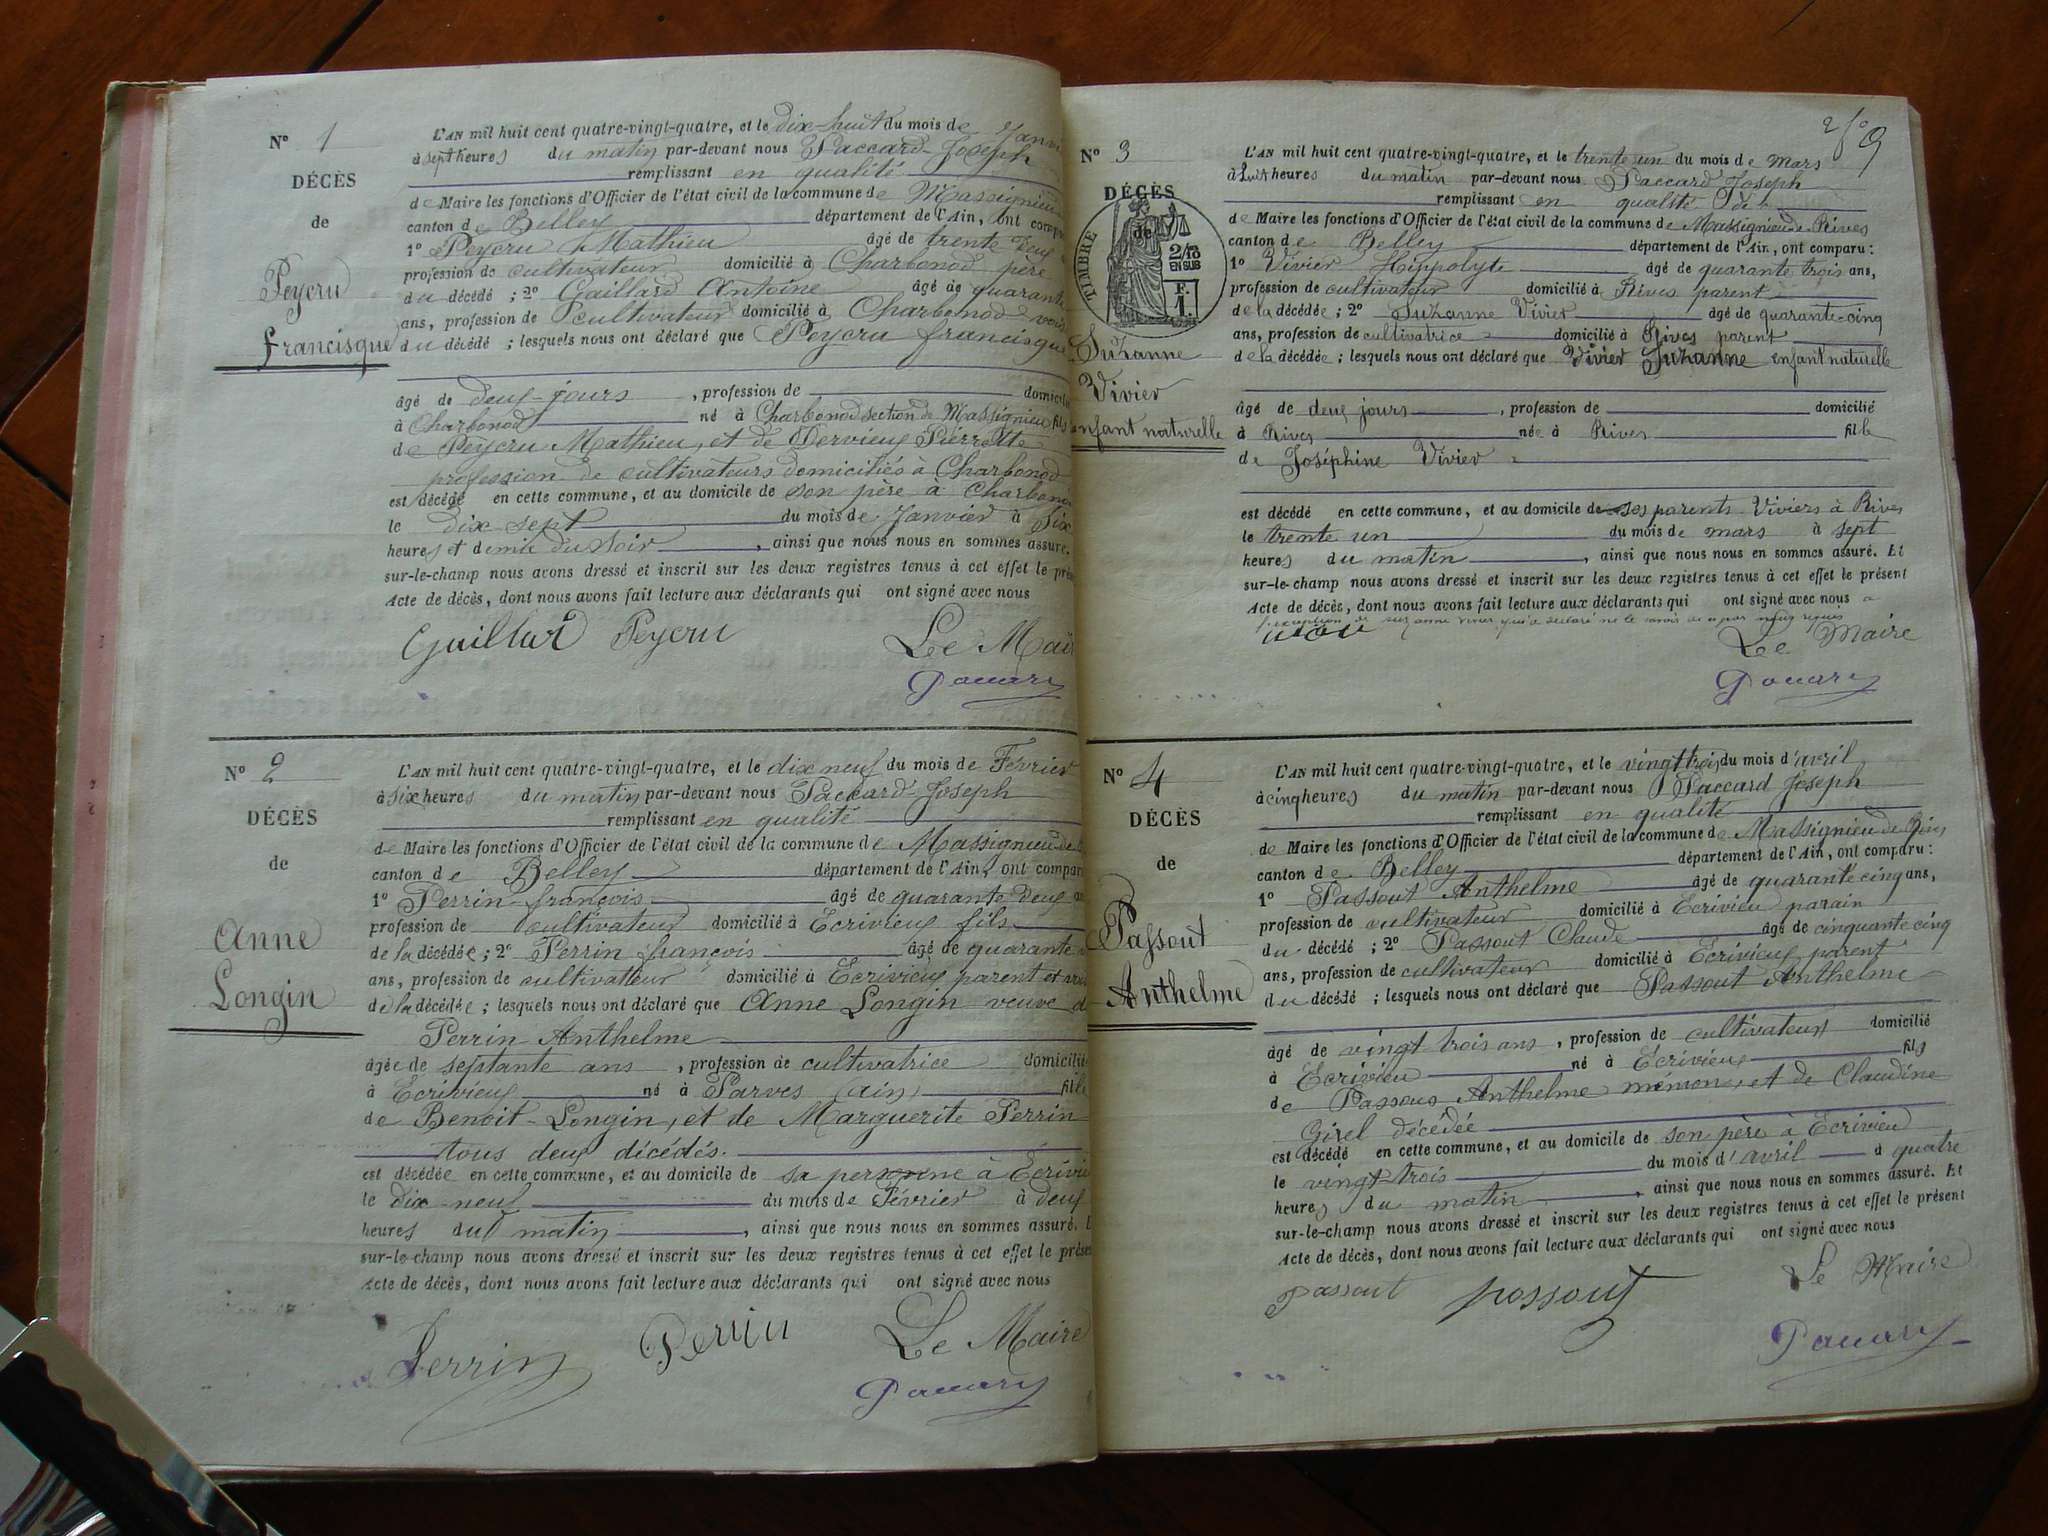 N° 1
DÉCÈS
de
Peycru
francisque
L'AN mil huit cent quatre-vingt-quatre, et le dix-huit du mois de Janvi
à sept heures du matin par-devant nous Paccard Joseph
remplissant en qualité
de Maire les fonctions d'Officier de l'état civil de la commune de Massignieu
canton de Belley département de l'Ain, ont compa
1° Peycru Mathieu âgé de trente deux
profession de cultivateur domicilié à Charbonod père
du décédé ; 2° Gaillard Antoine âgé de quarante
ans, profession de cultivateur domicilié à Charbonod vois
du décédé ; lesquels nous ont déclaré que Peycru francisque
âgé de deux jours , profession de domicilié
à Charbonod né à Charbonod section de Massignieu fils
de Peycru Mathieu, et de Dervieux Pierrette
profession de cultivateurs domiciliés à Charbonod
est décédé en cette commune, et au domicile de son père à Charbonod
le dix sept du mois de Janvier à Six
heures et demie du Soir , ainsi que nous nous en sommes assuré.
sur-le-champ nous avons dressé et inscrit sur les deux registres tenus à cet effet le prés
Acte de décès, dont nous avons fait lecture aux déclarants qui ont signé avec nous
Gaillar Peycru Le Mai
Paccard
N° 2
DÉCÈS
de
Anne
Longin
L'AN mil huit cent quatre-vingt-quatre, et le dix neuf du mois de Février
à six heures du matin par-devant nous Paccard Joseph
remplissant en qualité
de Maire les fonctions d'Officier de l'état civil de la commune de Massignieu de
canton de Belley département de l'Ain, ont compar
1° Perrin françois âgé de quarante deux
profession de cultivateur domicilié à Ecrivieux fils
de la décédée ; 2° Perrin françois âgé de quarante
ans, profession de cultivateur domicilié à Ecrivieux parent et
de la décédée ; lesquels nous ont déclaré que Anne Longin veuve d
Perrin Anthelme
âgée de septante ans , profession de cultivatrice domicilié
à Ecrivieux né à Parves (ain) fille
de Benoit Longin, et de Marguerite Perrin
tous deux décédés.
est décédée en cette commune, et au domicile de sa personne à Ecrivie
le dix neuf du mois de Février à deux
heures du matin , ainsi que nous nous en sommes assuré. E
sur-le-champ nous avons dressé et inscrit sur les deux registres tenus à cet effet le prése
Acte de décès, dont nous avons fait lecture aux déclarants qui ont signé avec nous
Perrin Perrin Le Maire
Paccard
N° 3
DÉCÈS
de
TIMBRE
2/10
EN SUS
F.
1.
Suzanne
Vivier
enfant naturelle
L'AN mil huit cent quatre-vingt-quatre, et le trente un du mois de mars
à huit heures du matin par-devant nous Paccard Joseph
remplissant en qualité
de Maire les fonctions d'Officier de l'état civil de la commune de Massignieu de Rives
canton de Belley département de l'Ain, ont comparu :
1° Vivier Hippolyte âgé de quarante trois ans,
profession de cultivateur domicilié à Rives parent
de la décédée ; 2° Suzanne Vivier âgé de quarante-cinq
ans, profession de cultivatrice domicilié à Rives parent
de la décédée ; lesquels nous ont déclaré que Vivier Suzanne enfant naturelle
âgé de deux jours , profession de domicilié
à Rives née à Rives fille
de Joséphine Vivier
est décédé en cette commune, et au domicile de ses parents Viviers à Rives
le trente un du mois de mars à sept
heures du matin , ainsi que nous nous en sommes assuré. Et
sur-le-champ nous avons dressé et inscrit sur les deux registres tenus à cet effet le présent
Acte de décès, dont nous avons fait lecture aux déclarants qui ont signé avec nous
l'exception de suzanne vivier qui a déclaré ne le savoir de ce par nous requis
Le Maire
Paccard
N° 4
DÉCÈS
de
Passout
Anthelme
L'AN mil huit cent quatre-vingt-quatre, et le vingt trois du mois d'avril
à cinq heures du matin par-devant nous Paccard Joseph
remplissant en qualité
de Maire les fonctions d'Officier de l'état civil de la commune de Massignieu de Rives
canton de Belley département de l'Ain, ont comparu :
1° Passout Anthelme âgé de quarante cinq ans,
profession de cultivateur domicilié à Ecrivieu parain
du décédé ; 2° Passout Claude âgé de cinquante cinq
ans, profession de cultivateur domicilié à Ecrivieux parent
du décédé ; lesquels nous ont déclaré que Passout Anthelme
âgé de vingt trois ans , profession de cultivateur domicilié
à Ecrivieu né à Ecrivieux fils
de Passout Anthelme mémon, et de Claudine
Girel décédée
est décédé en cette commune, et au domicile de son père à Ecrivieu
le vingt trois du mois d'avril à quatre
heures du matin , ainsi que nous nous en sommes assuré. Et
sur-le-champ nous avons dressé et inscrit sur les deux registres tenus à cet effet le présent
Acte de décès, dont nous avons fait lecture aux déclarants qui ont signé avec nous
Passout passout Le Maire
Paccard